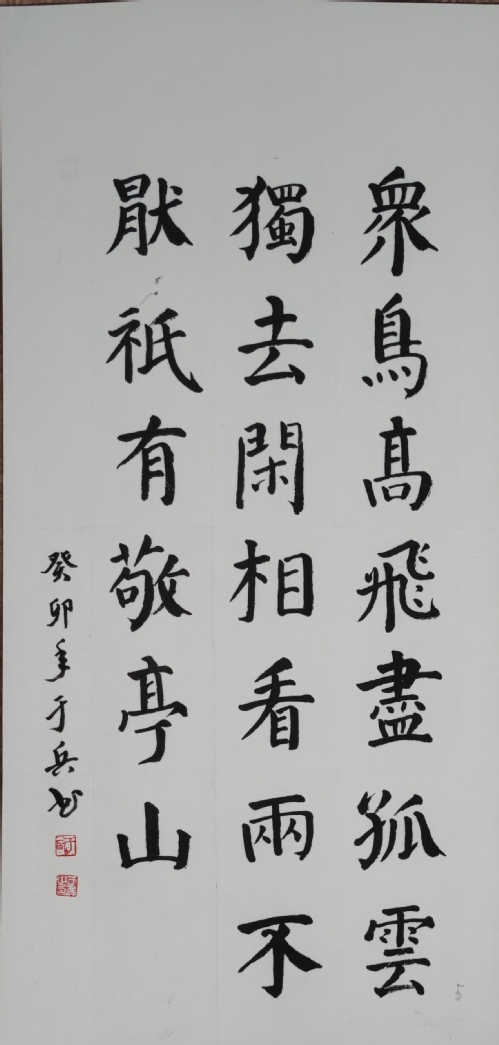 眾鳥高飛盡孤雲
獨去閑相看兩不
猒祇有敬亭山
癸卯年于兵书